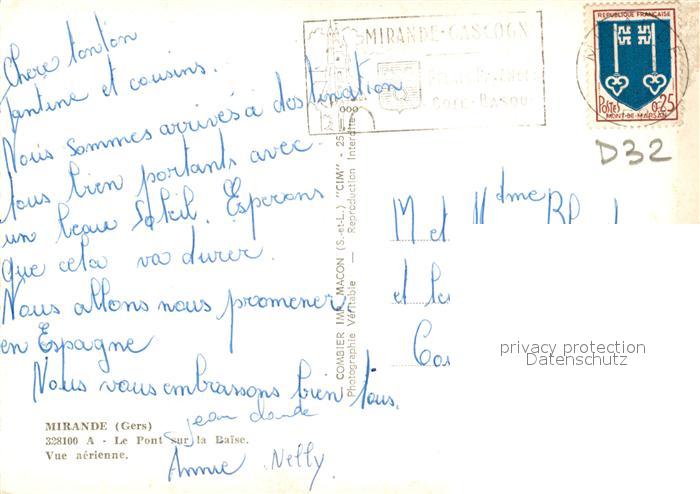 Chers tonton
tantine et cousins.
Nous sommes arrivés à destination
tous bien portants avec
un beau soleil. Esperons
que cela va durer.
Nous allons nous promener
en Espagne
Nous vous embrassons bien tous.
jean claude
Annie Nelly
MIRANDE (Gers)
328100 A - Le Pont sur la Baïse.
Vue aérienne.
COMBIER IMP. MACON (S.-et-L.) "CIM" - 25
Photographie Véritable — Reproduction Interdite
MIRANDE-GASCOGN
REPUBLIQUE FRANÇAISE
Postes 0,25
MONT-DE-MARSAN
D32
M et Mdme
et
privacy protection
Datenschutz